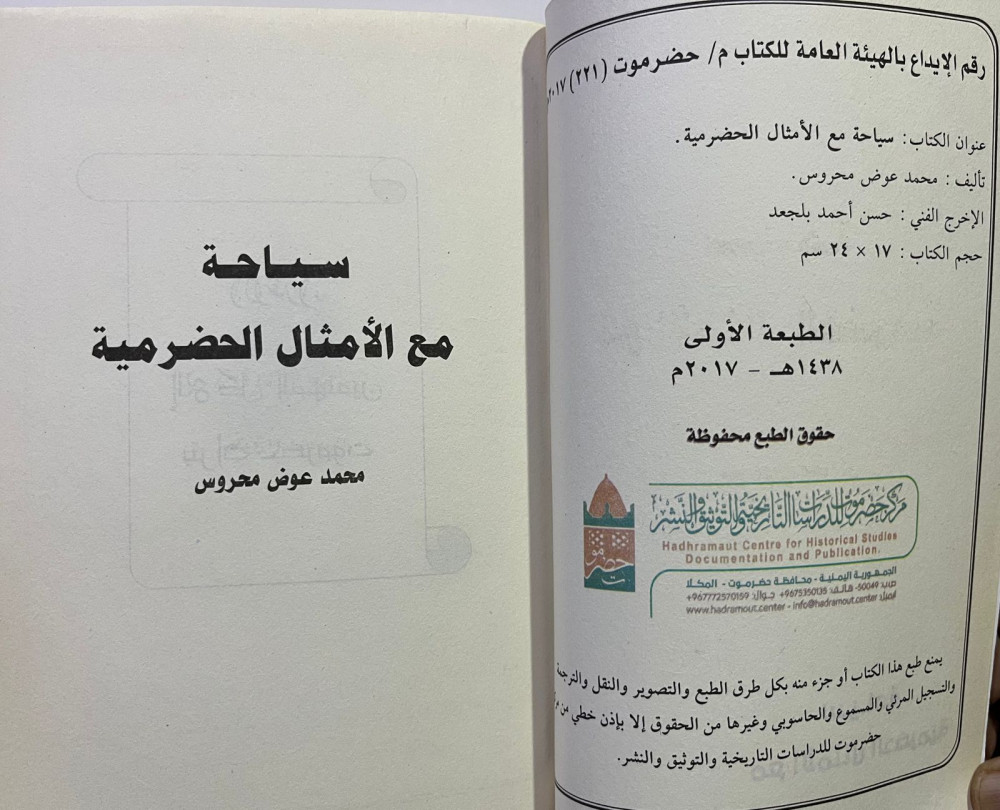 رقم الإيداع بالهيئة العامة للكتاب م/ حضرموت (٢٢١) ٢٠١٧م
عنوان الكتاب: سياحة مع الأمثال الحضرمية.
تأليف: محمد عوض محروس.
الإخرج الفني: حسن أحمد بلجعد
حجم الكتاب: ١٧ × ٢٤ سم
الطبعة الأولى
١٤٣٨هـ - ٢٠١٧م
حقوق الطبع محفوظة
مركز حضرموت للدراسات التاريخية والتوثيق والنشر
Hadhramaut Centre for Historical Studies
Documentation and Publication.
حضرموت
الجمهورية اليمنية - محافظة حضرموت - المكلا
ص.ب: 50049- هاتف: 9675350135+ جوال: 967772570159+
www.hadramout.center - info@hadramout.center :إيميل
يمنع طبع هذا الكتاب أو جزء منه بكل طرق الطبع والتصوير والنقل والترجمة
والتسجيل المرئي والمسموع والحاسوبي وغيرها من الحقوق إلا بإذن خطي من
حضرموت للدراسات التاريخية والتوثيق والنشر.
سياحة
مع الأمثال الحضرمية
محمد عوض محروس